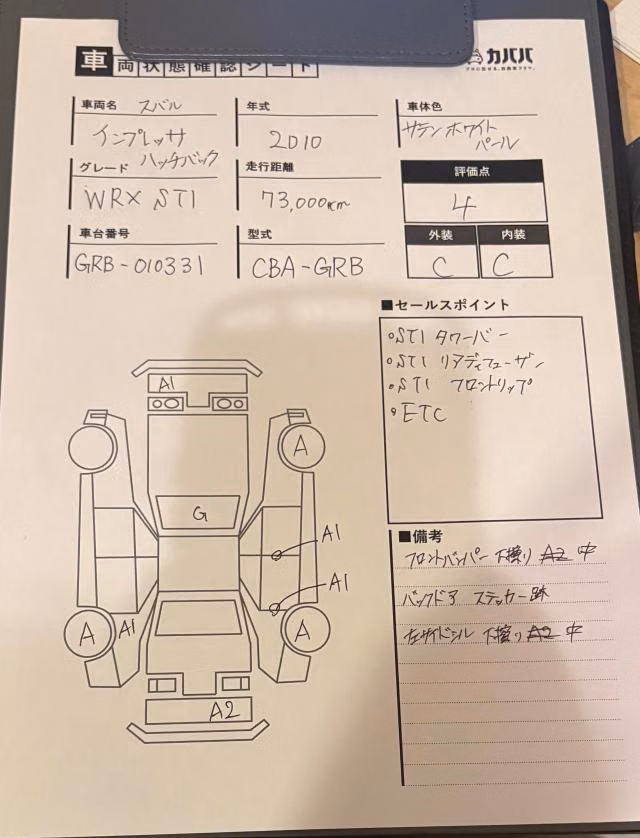 車両状態確認シート
カババ
車両名 スバル
インプレッサ
ハッチバック
年式
2010
車体色
サテンホワイト
パール
グレード
WRX STI
走行距離
73,000km
評価点
4
車台番号
GRB-010331
型式
CBA-GRB
外装
内装
C
C
■セールスポイント
STI タワーバー
STI リアディフューザー
STI フロントリップ
ETC
A1
A
G
A1
A1
A
A1
A
A2
■備考
フロントバンパー 下擦り A2 中
バックドア ステッカー跡
左サイドシル 下擦り A2 中